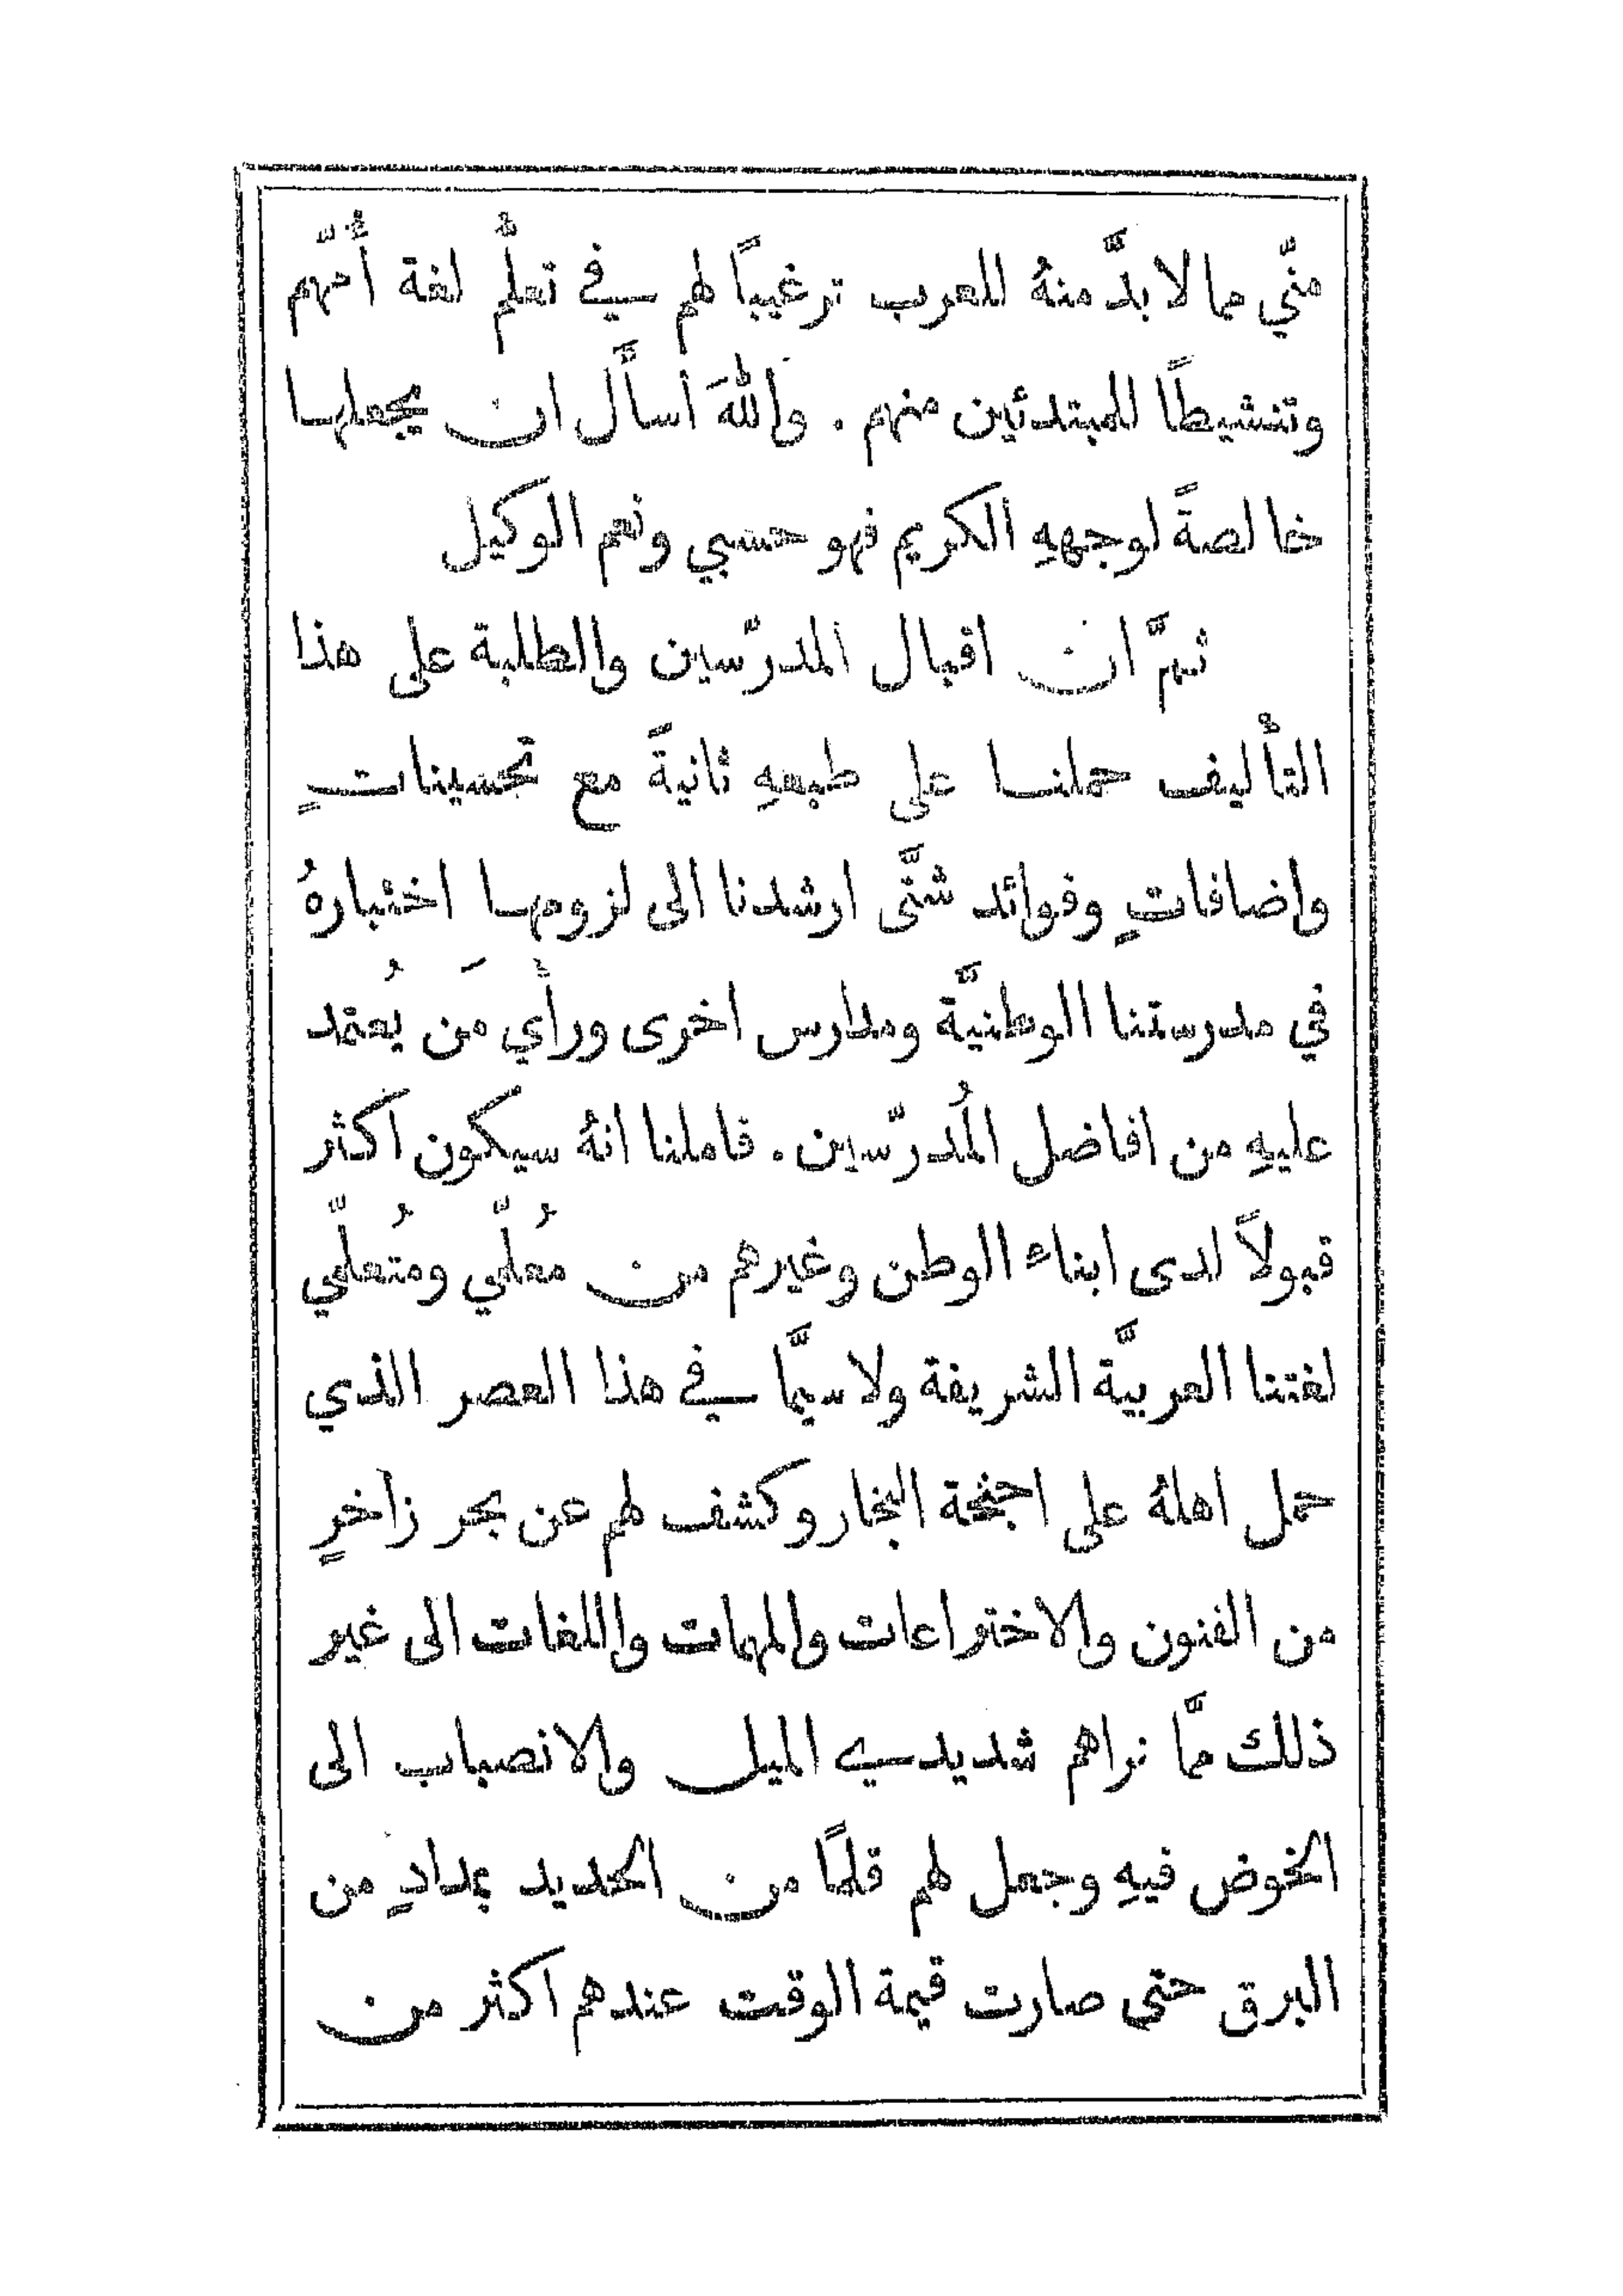 منّي مما لا بدَّ منهُ للعرب ترغيبًا لهم في تعلُّم لغة أُمّهم
وتنشيطًا للمبتدئين منهم . واللهَ اسأَل ان يجعلها
خالصةً لوجههِ الكريم فهو حسبي ونعم الوكيل
ثمَّ ان اقبال المدرّسين والطلبة على هذا
التأليف حملنا على طبعهِ ثانيةً مع تحسيناتٍ
واضافاتٍ وفوائد شتَّى ارشدنا الى لزومها اختبارهُ
في مدرستنا الوطنيَّة ومدارس اخرى ورأي مَن يُعتمد
عليهِ من افاضل المُدرّسين . فاملنا انهُ سيكون اكثر
قبولاً لدى ابناء الوطن وغيرهم من مُعلّمي ومتُعلّمي
لغتنا العربيَّة الشريفة ولا سيَّما في هذا العصر الذي
حمل اهلهُ على اجنحة البخار وكشف لهم عن بحر زاخرٍ
من الفنون والاختراعات والمهمات واللغات الى غير
ذلك ممَّا نراهم شديدي الميل والانصباب الى
الخوض فيهِ وجعل لهم قلمًا من الحديد بمدادٍ من
البرق حتى صارت قيمة الوقت عندهم اكثر من